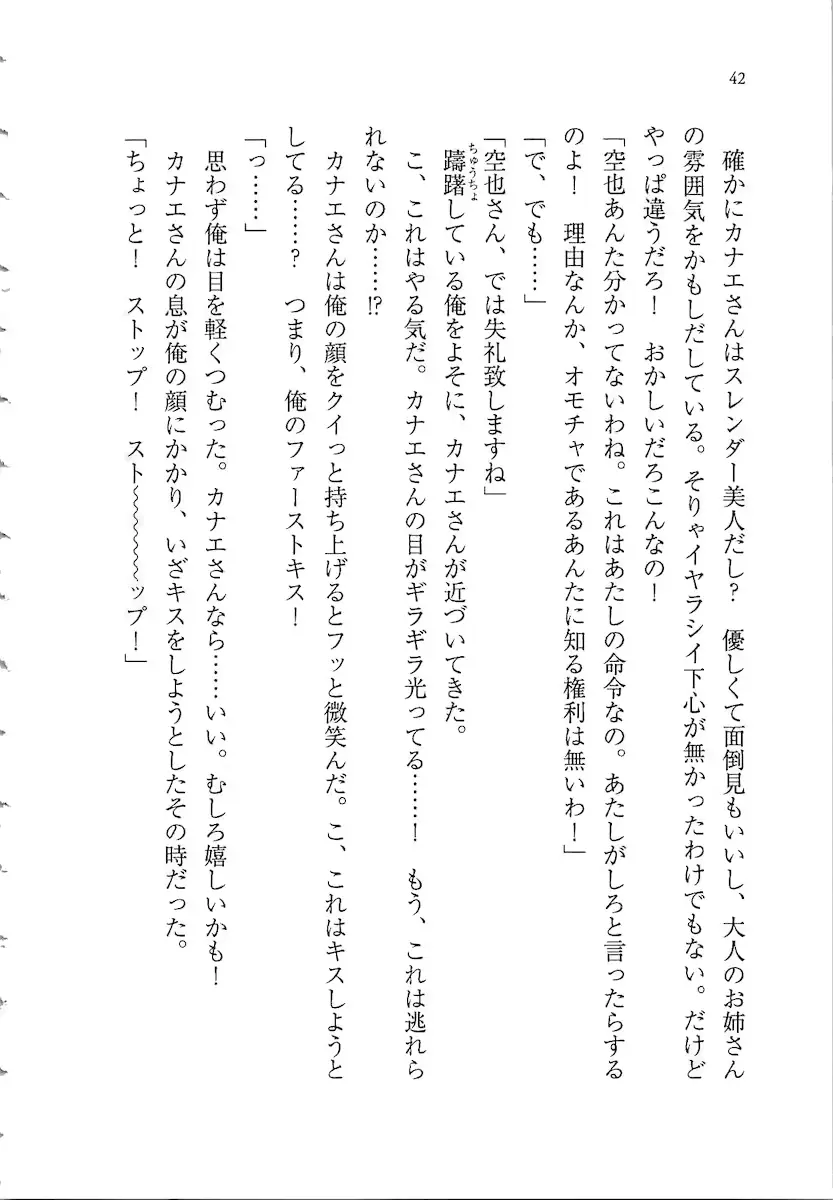 42
確かにカナエさんはスレンダー美人だし？　優しくて面倒見もいいし、大人のお姉さん
の雰囲気をかもしだしている。そりゃイヤラシイ下心が無かったわけでもない。だけど
やっぱ違うだろ！　おかしいだろこんなの！
「空也あんた分かってないわね。これはあたしの命令なの。あたしがしろと言ったらする
のよ！　理由なんか、オモチャであるあんたに知る権利は無いわ！」
「で、でも……」
「空也さん、では失礼致しますね」
躊躇ちゅうちょしている俺をよそに、カナエさんが近づいてきた。
こ、これはやる気だ。カナエさんの目がギラギラ光ってる……！　もう、これは逃れら
れないのか……!?
カナエさんは俺の顔をクイっと持ち上げるとフッと微笑んだ。こ、これはキスしようと
してる……？　つまり、俺のファーストキス！
「っ……」
思わず俺は目を軽くつむった。カナエさんなら……いい。むしろ嬉しいかも！
カナエさんの息が俺の顔にかかり、いざキスをしようとしたその時だった。
「ちょっと！　ストップ！　スト～～～～～～ップ！」